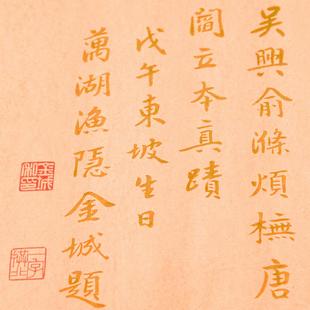 吳興俞滌煩橅唐
閻立本真蹟
戊午東坡生日
藕湖漁隱金城題